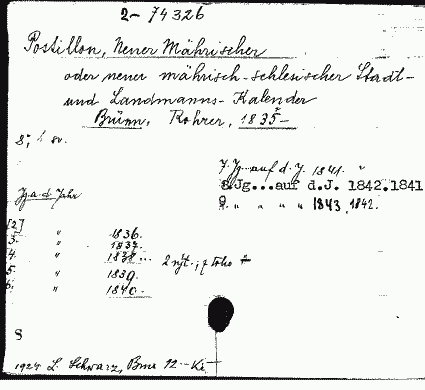 2-74326
Postillon, Neuer Mährischer
oder neuer mährisch-schlesischer Stadt-
und Landmanns-Kalender
Brünn, Rohrer, 1835-
8°, 1 sv.
7. Jg...auf d. J. 1841. "
8.Jg...auf d.J. 1842.1841
9. " " " " 1843, 1842.
Jg. a. d. Jahr
[2] " 1836.
3. " 1837.
4. " 1838...
5. " 1839.
6. " 1840.
8
1924 L. Schwarz, Brno 12.- Kč